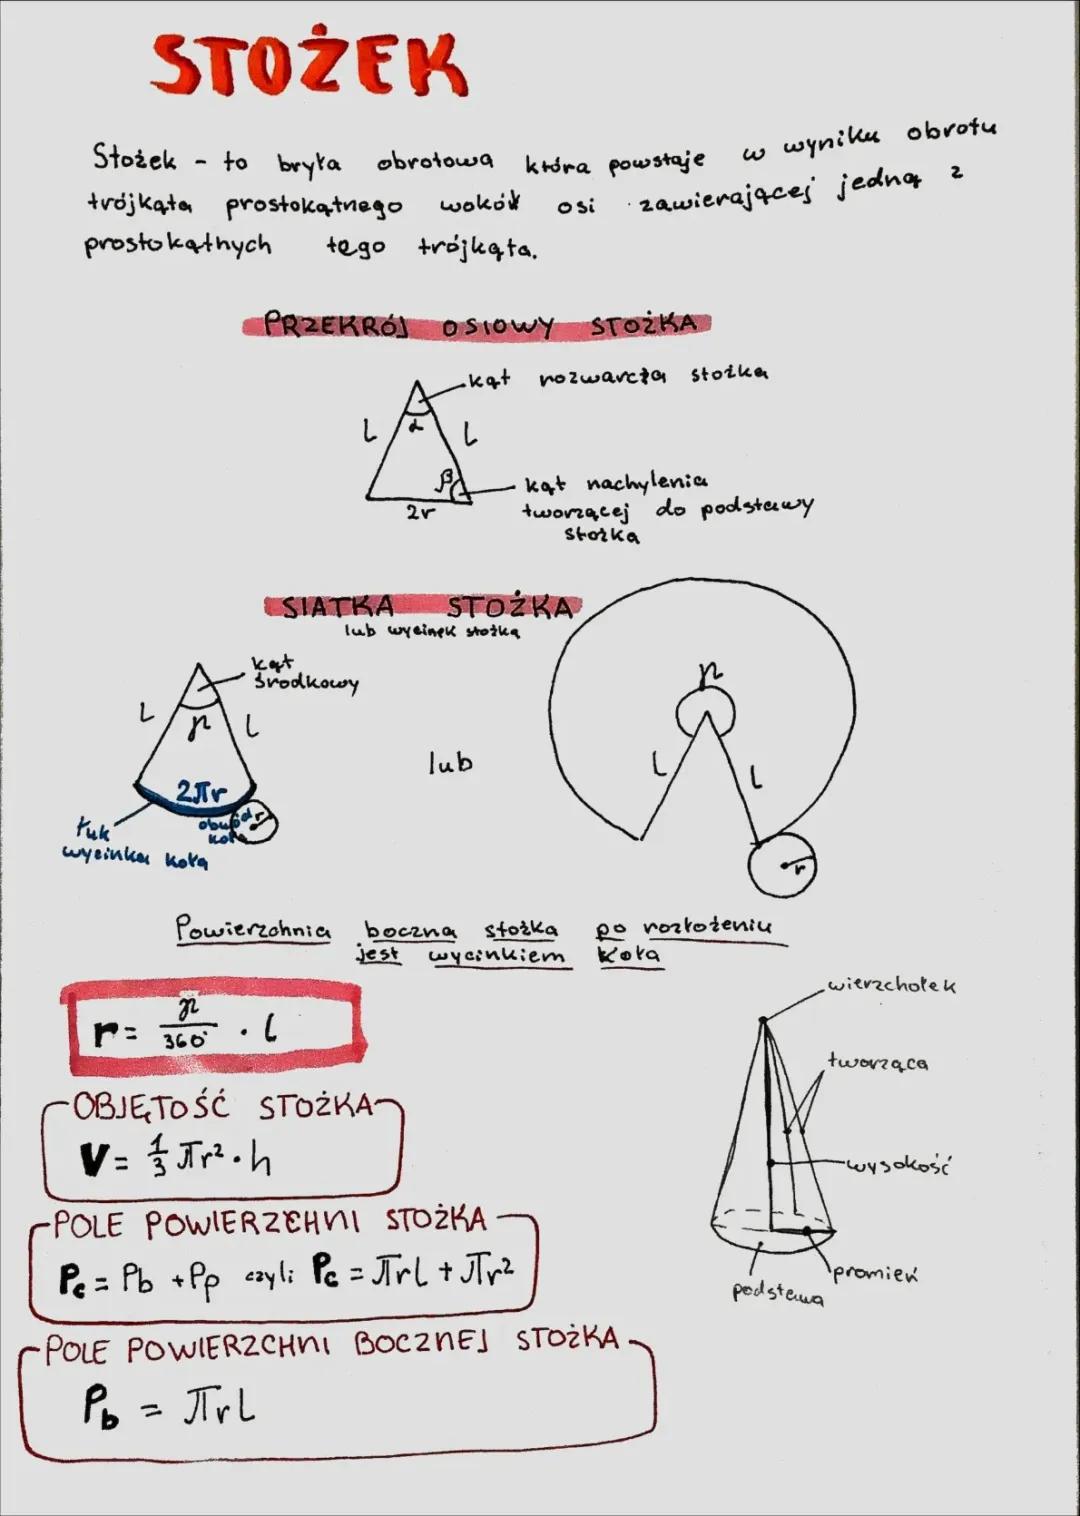 STOŻEK
Stożek - to bryła obrotowa która powstaje w wyniku obrotu
trójkąta prostokątnego wokół osi zawierającej jedną z
prostokątnych tego trójkąta.
PRZEKRÓJ OSIOWY STOŻKA
kąt rozwarcia stożka
l α l
β
2r
kąt nachylenia
tworzącej do podstawy
stożka
SIATKA STOŻKA
lub wycinek stożka
kąt
środkowy
l l
2πr
obwód r
koła
łuk
wycinka koła
lub
l l
r
Powierzchnia boczna stożka po rozłożeniu
jest wycinkiem koła
r = γ/360° · l
OBJĘTOŚĆ STOŻKA
V = 1/3 πr² · h
POLE POWIERZCHNI STOŻKA
Pc = Pb + Pp czyli Pc = πrl + πr²
POLE POWIERZCHNI BOCZNEJ STOŻKA
Pb = πrl
wierzchołek
tworząca
wysokość
promień
podstawa